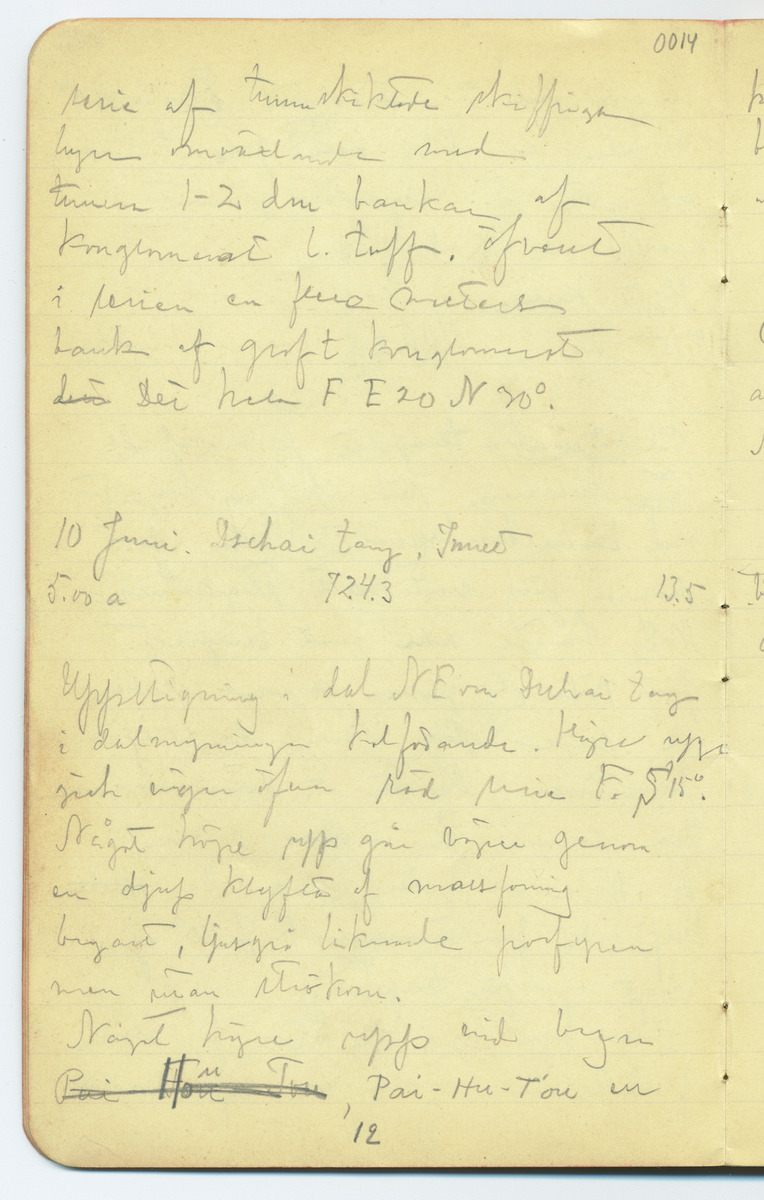 0014
serie af tunnskiktade skiffriga
lager omväxlande med
tunna 1-2 dm bankar af
konglomerat l. tuff. Öfverst
i serien en flera meters
bank af groft konglomerat
det Det hela F E20N 30°.
10 Juni. Dschai tang, Tmet
5.00 a 724.3 13.5
Uppstigning i dal NE om Dschai tang
i dalmynningen kolförande. Högre upp
gick vägen öfver röd serie F. S 15°.
Något högre upp går vägen genom
en djup klyfta af massformig
bergart, ljusgrå liknande porfyren
men utan strökorn.
Något högre upp vid byn
Pai Hou Tou, Pai-Hu-T'ou en
12